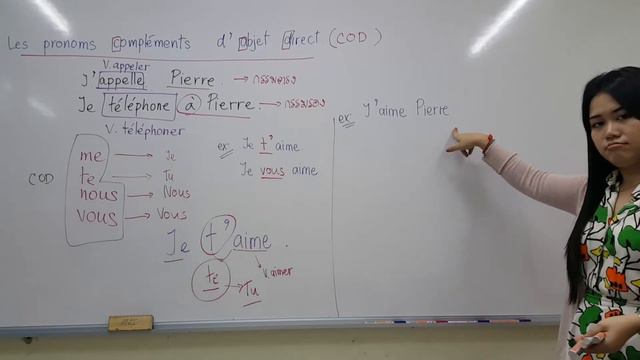 Les pronoms compléments d'objet direct (COD)
V. appeler
J'appelle Pierre. → กรรมตรง
Je téléphone à Pierre → กรรมรอง
V. téléphoner
COD
me → Je
te → Tu
nous → Nous
vous → Vous
ex: Je t'aime
Je vous aime
Je t'aime.
te → Tu
v. aimer
ex: J'aime Pierre